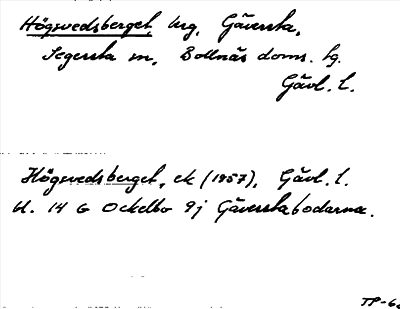 Högsvedsberget, krg, Gäversta,
Segersta sn, Bollnäs doms. hg.
Gävl. l.
Högsvedsberget, ek (1957), Gävl. l.
bl. 14 G Ockelbo 9j Gäverstabodarna.